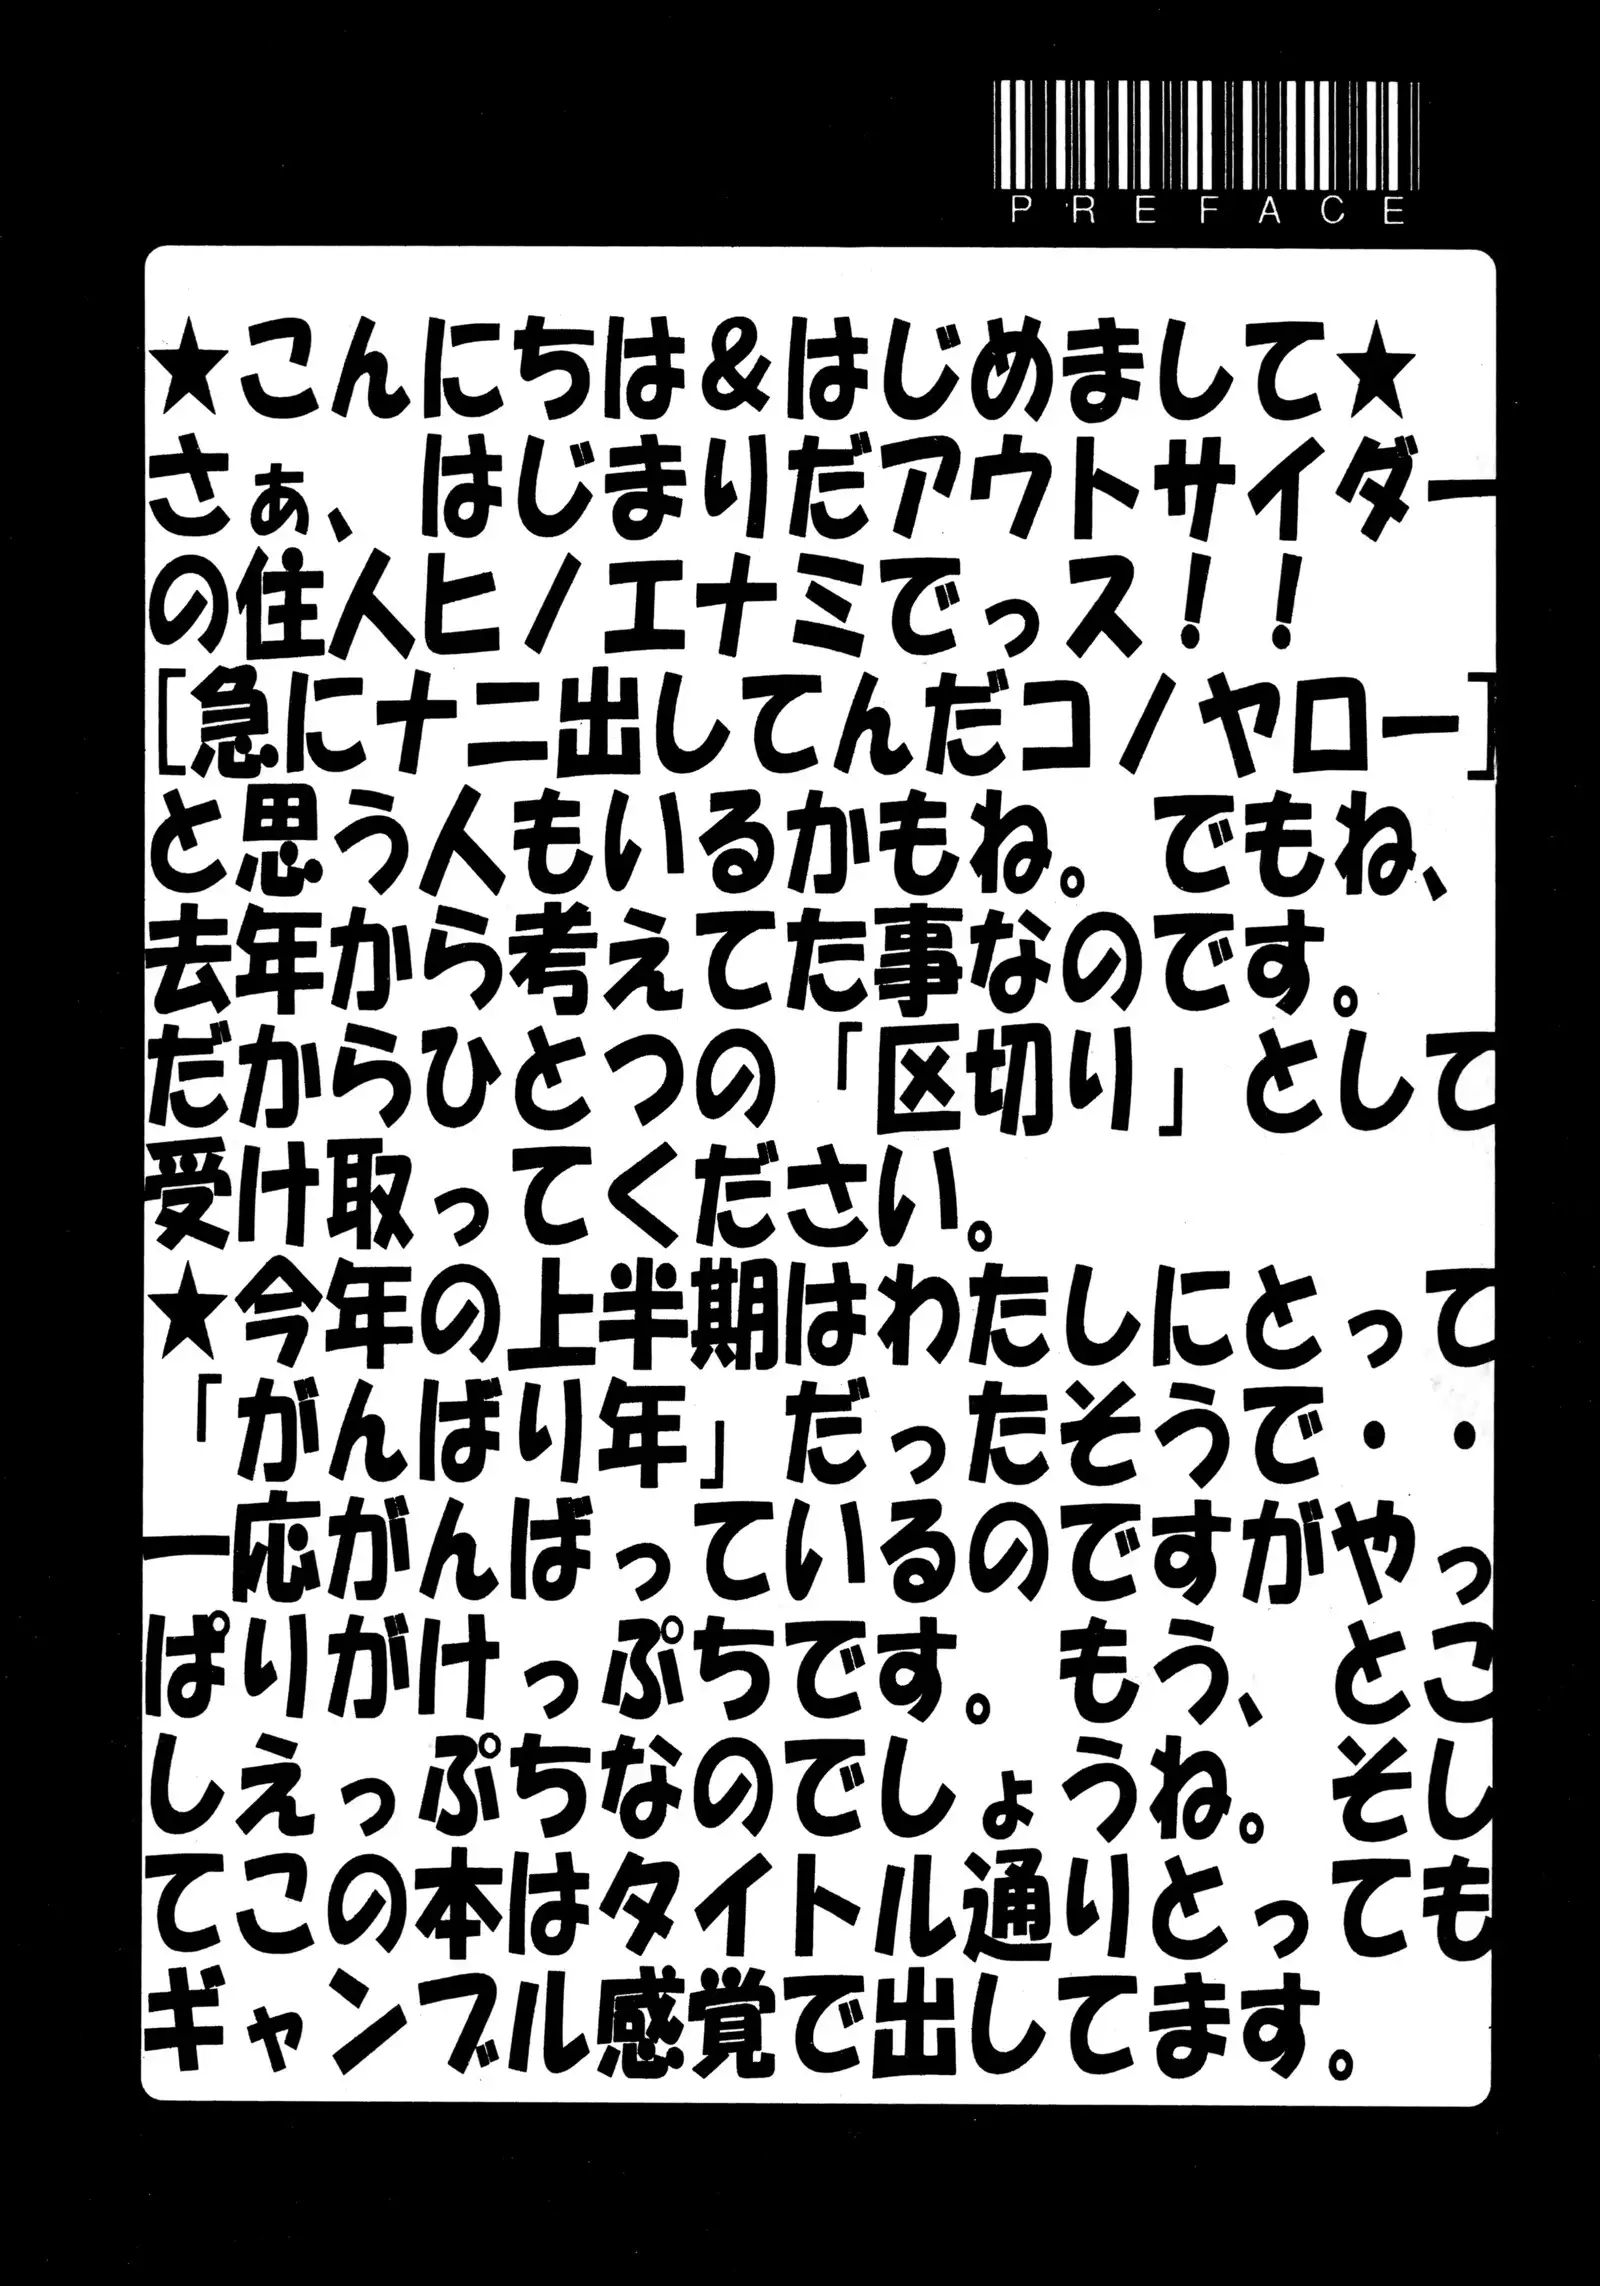 PREFACE
★こんにちは&はじめまして★
さぁ、はじまりだアウトサイダー
の住人ヒノエナミでっス!!
[急にナニ出してんだコノヤロー]
と思う人もいるかもね。でもね、
去年から考えてた事なのです。
だからひとつの「区切り」として
受け取ってください。
★今年の上半期はわたしにとって
「がんばり年」だったそうで・・
一応がんばっているのですがやっ
ぱりがけっぷちです。もう、とこ
しえっぷちなのでしょうね。そし
てこの本はタイトル通りとっても
ギャンブル感覚で出してます。